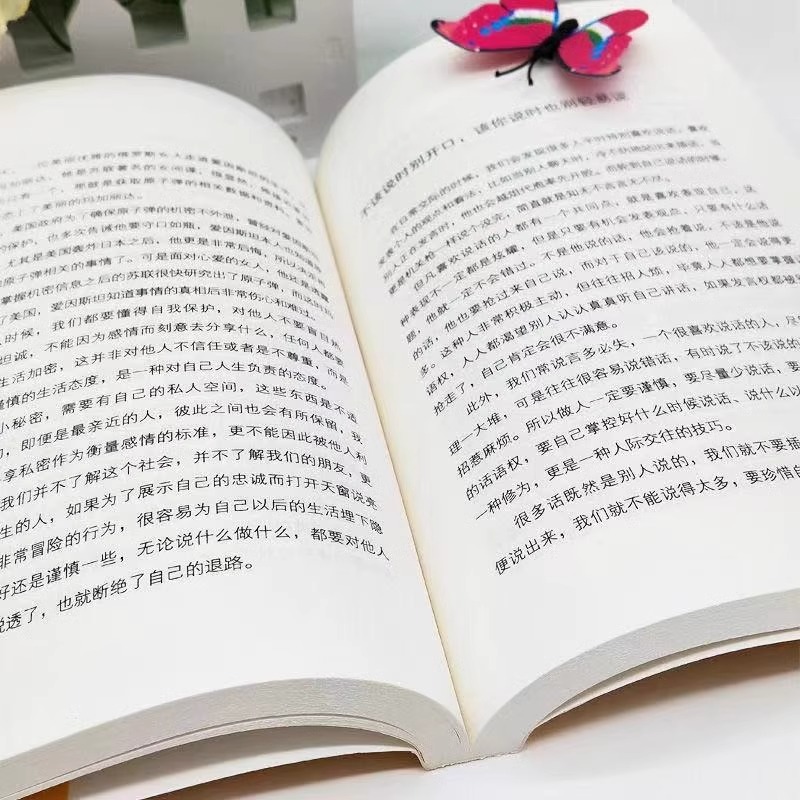 位美丽优雅的俄罗斯女人走进爱因斯坦的生活
玛加丽达，她是苏联著名的女间谍，很显然，她接近
只有一个，那就是获取原子弹的相关数据和资料
恋上了美丽的玛加丽达。
美国政府为了确保原子弹的机密不外泄，曾经对爱因斯
的保护，也多次告诫他要守口如瓶，爱因斯坦本人也知道
尤其是美国轰炸日本之后，他更是非常后悔，所以
原子弹相关的事情了。可是面对心爱的女人，他还是
掌握机密信息之后的苏联很快研究出了原子弹，而这时
了美国，爱因斯坦知道事情的真相后非常伤心和难过。
时候，我们都要懂得自我保护，对他人不要盲目
坦诚，不能因为感情而刻意去分享什么，任何人都要
生活加密，这并非对他人不信任或者是不尊重，而是
谨慎的生活态度，是一种对自己人生负责的态度。
小秘密，需要有自己的私人空间，这些东西是不适
的，即便是最亲近的人，彼此之间也会有所保留，我
享私密作为衡量感情的标准，更不能因此被他人利
我们并不了解这个社会，并不了解我们的朋友，更
生的人，如果为了展示自己的忠诚而打开天窗说亮
非常冒险的行为，很容易为自己以后的生活埋下隐
好还是谨慎一些，无论说什么做什么，都要对他人
说透了，也就断绝了自己的退路。
不该说时别开口，该你说时也别轻易说
在日常交际的时候，我们会发现很多人平时特别喜欢说话，喜欢
发表个人的观点和看法；比如当别人聊天时，冷不扔地跑出来插话，当
别人正在发言时，他也会越俎代庖率先开腔，而轮到自己说话的时候，
更是机关枪一样说个没完，简直就是知无不言言无不尽。
但凡喜欢说话的人都有一个共同点，就是喜欢表现自己，这
种表现不一定都是炫耀，但是只要有机会发表观点，只要有什么话
题，他就一定不会错过。不是他说的话，他会抢着说，不该是他说
的话，他也要抢过来自己说，而对于自己该说的，他一定会说得更
多。这种人非常积极主动，但往往招人烦，毕竟人人都想要掌握话
语权，人人都渴望别人认认真真听自己讲话，如果发言权都被
抢走了，自己肯定会很不满意。
此外，我们常说言多必失，一个很喜欢说话的人，尽
理一大堆，可是往往很容易说错话，有时说了不该说的
招惹麻烦。所以做人一定要谨慎，要尽量少说话，要
的话语权，要自己掌控好什么时候说话、说什么以
一种修为，更是一种人际交往的技巧。
很多话既然是别人说的，我们就不要插
便说出来，我们就不能说得太多，要珍惜自